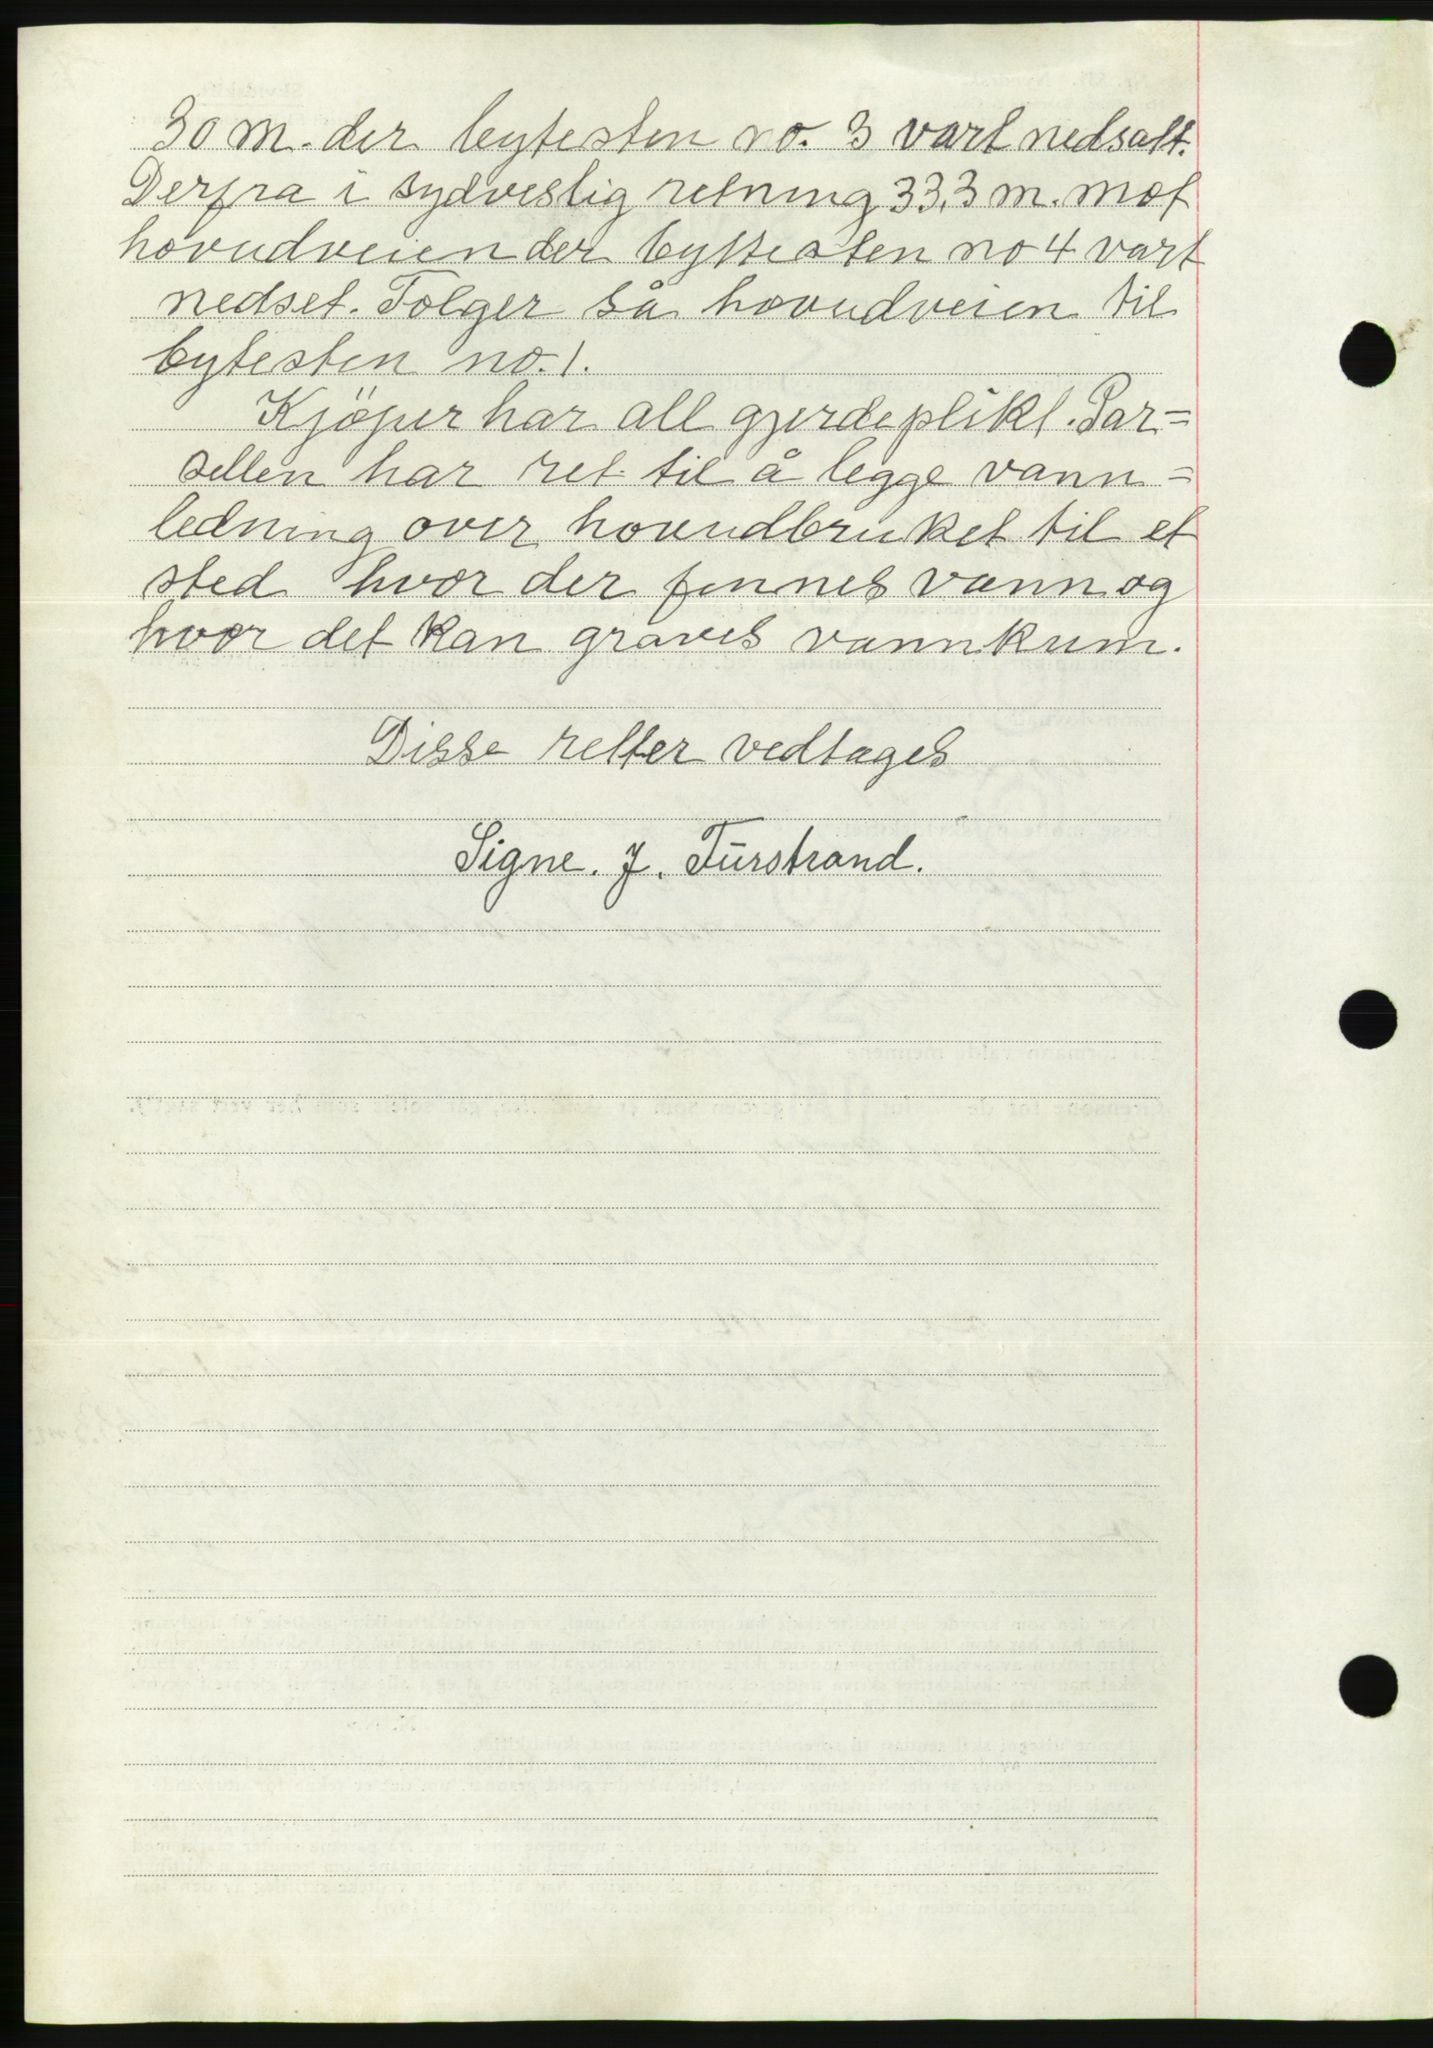 30 m. der bytesten no. 3 vart nedsatt.
Derfra i sydvestlig retning 33,3 m. mot
hovudveien der byttesten no 4 vart
nedset. Følger så hovudveien til
bytesten no. 1.
Kjöper har all gjerdeplikt. Par=
sellen har ret til å legge vann=
ledning over hovudbruket til et
sted hvor der finnes vann og
hvor det kan graves vannkum.
Disse retter vedtages
Signe. J. Türstrand.